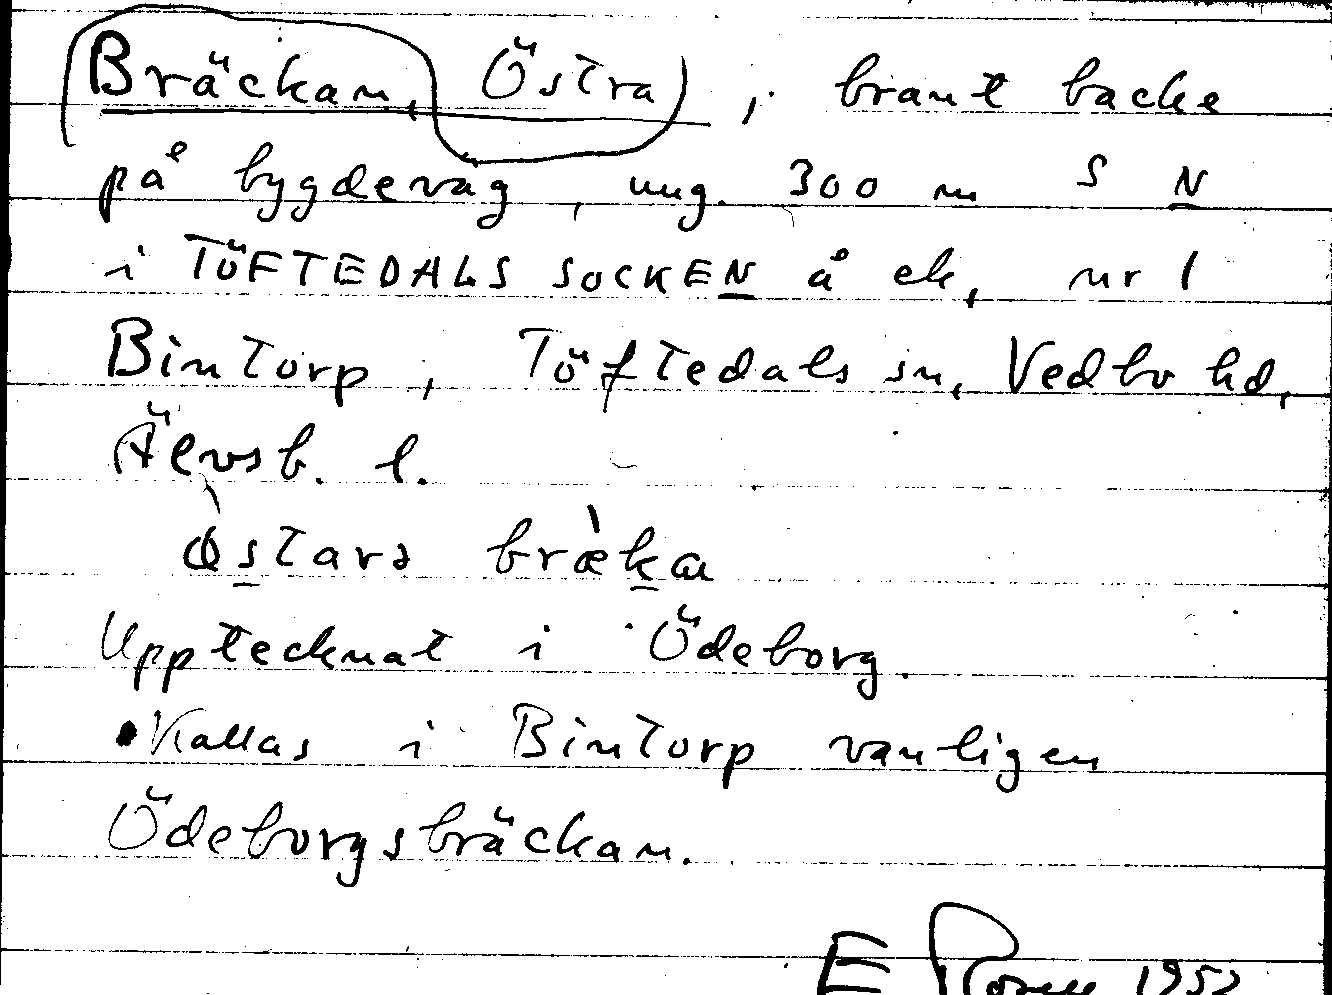 Bräckan, Östra, brant backe
på bygdeväg, ung. 300 m S N
i TÖFTEDALS SOCKEN å ek, nr 1
Bintorp, Töftedals sn, Vedbo hd,
Älvsb. l.
Upptecknat i Ödeborg.
Kallas i Bintorp vanligen
Ödeborgsbräckan.
E 1952